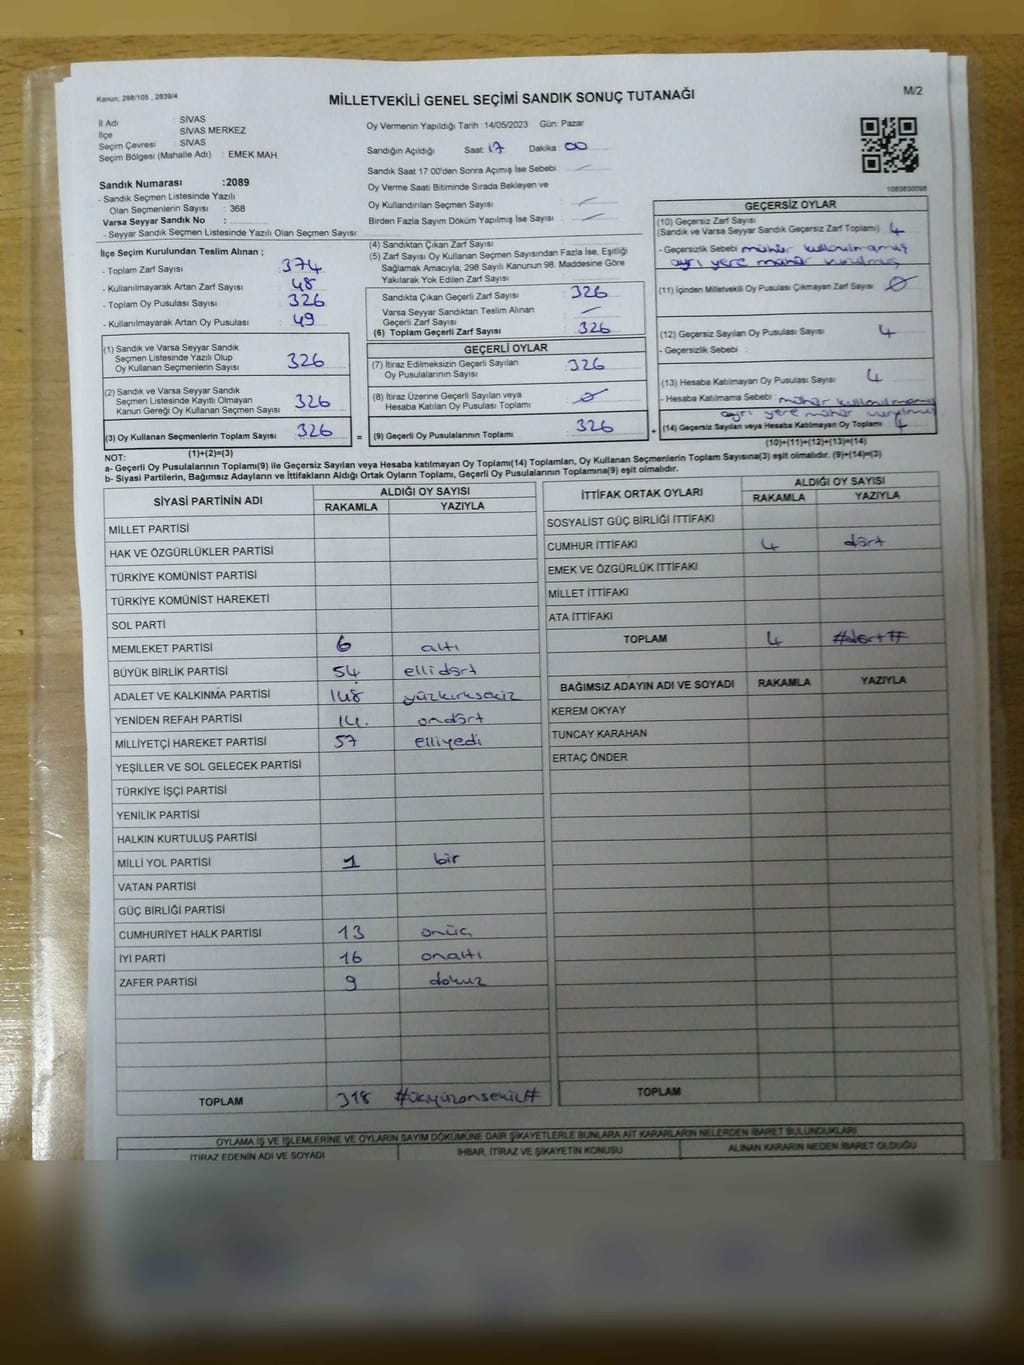 Kanun, 298/105 , 2839/4
MİLLETVEKİLİ GENEL SEÇİMİ SANDIK SONUÇ TUTANAĞI
M/2
İl Adı : SİVAS
İlçe SİVAS MERKEZ
Seçim Çevresi : SİVAS
Seçim Bölgesi (Mahalle Adı) : EMEK MAH
Sandık Numarası :2089
- Sandık Seçmen Listesinde Yazılı
Olan Seçmenlerin Sayısı : 368
Varsa Seyyar Sandık No :
- Seyyar Sandık Seçmen Listesinde Yazılı Olan Seçmen Sayısı:
Oy Vermenin Yapıldığı Tarih :14/05/2023 Gün: Pazar
Sandığın Açıldığı Saat: 17 Dakika: 00
Sandık Saat 17:00'den Sonra Açımış İse Sebebi :
Oy Verme Saati Bitiminde Sırada Bekleyen ve
Oy Kullandırılan Seçmen Sayısı :
Birden Fazla Sayım Döküm Yapılmış İse Sayısı :
1083830098
İlçe Seçim Kurulundan Teslim Alınan ;
- Toplam Zarf Sayısı : 374
- Kullanılmayarak Artan Zarf Sayısı : 48
- Toplam Oy Pusulası Sayısı : 326
- Kullanılmayarak Artan Oy Pusulası : 49
(1) Sandık ve Varsa Seyyar Sandık
Seçmen Listesinde Yazılı Olup
Oy Kullanan Seçmenlerin Sayısı 326
(2) Sandık ve Varsa Seyyar Sandık
Seçmen Listesinde Kayıtlı Olmayan
Kanun Gereği Oy Kullanan Seçmen Sayısı 326
(3) Oy Kullanan Seçmenlerin Toplam Sayısı 326 =
(1)+(2)=(3)
(4) Sandıktan Çıkan Zarf Sayısı :
(5) Zarf Sayısı Oy Kullanan Seçmen Sayısından Fazla İse, Eşitliği
Sağlamak Amacıyla; 298 Sayılı Kanunun 98. Maddesine Göre
Yakılarak Yok Edilen Zarf Sayısı :
Sandıkta Çıkan Geçerli Zarf Sayısı : 326
Varsa Seyyar Sandıktan Teslim Alınan
Geçerli Zarf Sayısı :
(6) Toplam Geçerli Zarf Sayısı : 326
GEÇERLİ OYLAR
(7) İtiraz Edilmeksizin Geçerli Sayılan
Oy Pusulalarının Sayısı : 326
(8) İtiraz Üzerine Geçerli Sayılan veya
Hesaba Katılan Oy Pusulası Toplamı : Ø
(9) Geçerli Oy Pusulalarının Toplamı : 326 +
GEÇERSİZ OYLAR
(10) Geçersiz Zarf Sayısı
(Sandık ve Varsa Seyyar Sandık Geçersiz Zarf Toplamı) : 4
- Geçersizlik Sebebi : mühür kullanılmamış
ayrı yere mühür vurulmuş
(11) İçinden Milletvekili Oy Pusulası Çıkmayan Zarf Sayısı : Ø
(12) Geçersiz Sayılan Oy Pusulası Sayısı : 4
- Geçersizlik Sebebi :
(13) Hesaba Katılmayan Oy Pusulası Sayısı : 4
- Hesaba Katılmama Sebebi : mühür kullanılmamış
ayrı yere mühür vurulmuş
(14) Geçersiz Sayılan veya Hesaba Katılmayan Oy Toplamı : 4
(10)+(11)+(12)+(13)=(14)
NOT:
a- Geçerli Oy Pusulalarının Toplamı(9) ile Geçersiz Sayılan veya Hesaba katılmayan Oy Toplamı(14) Toplamları, Oy Kullanan Seçmenlerin Toplam Sayısına(3) eşit olmalıdır. (9)+(14)=(3)
b- Siyasi Partilerin, Bağımsız Adayların ve İttifakların Aldığı Ortak Oyların Toplamı, Geçerli Oy Pusulalarının Toplamına(9) eşit olmalıdır.
SİYASİ PARTİNİN ADI ALDIĞI OY SAYISI
RAKAMLA YAZIYLA
MİLLET PARTİSİ
HAK VE ÖZGÜRLÜKLER PARTİSİ
TÜRKİYE KOMÜNİST PARTİSİ
TÜRKİYE KOMÜNİST HAREKETİ
SOL PARTİ
MEMLEKET PARTİSİ 6 altı
BÜYÜK BİRLİK PARTİSİ 54 ellidört
ADALET VE KALKINMA PARTİSİ 148 yüzkırksekiz
YENİDEN REFAH PARTİSİ 14. ondört
MİLLİYETÇİ HAREKET PARTİSİ 57 elliyedi
YEŞİLLER VE SOL GELECEK PARTİSİ
TÜRKİYE İŞÇİ PARTİSİ
YENİLİK PARTİSİ
HALKIN KURTULUŞ PARTİSİ
MİLLİ YOL PARTİSİ 1 bir
VATAN PARTİSİ
GÜÇ BİRLİĞİ PARTİSİ
CUMHURİYET HALK PARTİSİ 13 onüç
İYİ PARTİ 16 onaltı
ZAFER PARTİSİ 9 dokuz
TOPLAM 318 #üçyüzonsekiz#
İTTİFAK ORTAK OYLARI ALDIĞI OY SAYISI
RAKAMLA YAZIYLA
SOSYALİST GÜÇ BİRLİĞİ İTTİFAKI
CUMHUR İTTİFAKI 4 dört
EMEK VE ÖZGÜRLÜK İTTİFAKI
MİLLET İTTİFAKI
ATA İTTİFAKI
TOPLAM 4 #dört#
BAĞIMSIZ ADAYIN ADI VE SOYADI RAKAMLA YAZIYLA
KEREM OKYAY
TUNCAY KARAHAN
ERTAÇ ÖNDER
TOPLAM
OYLAMA İŞ VE İŞLEMLERİNE VE OYLARIN SAYIM DÖKÜMÜNE DAİR ŞİKAYETLERLE BUNLARA AİT KARARLARIN NELERDEN İBARET BULUNDUKLARI
İTİRAZ EDENİN ADI VE SOYADI İHBAR, İTİRAZ VE ŞİKAYETİN KONUSU ALINAN KARARIN NEDEN İBARET OLDUĞU